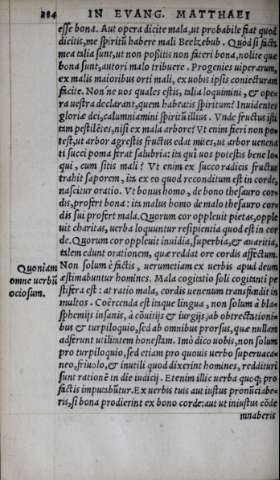 284 IN EVANG. MATTHAEI
esse bona. Aut opera dicite mala, ut probabile fiat quod
dicitis, me spiritũ habere mali Beelzebub. Quòd si facta
mea talia sunt, ut non possitis non fateri bona, nolite quæ
bona sunt, autori malo tribuere. Progenies uiperarum,
ex malis maioribus orti mali, ex uobis ipsis coniecturam
facite. Non'ne uos quales estis, talia loquimini, & ope-
ra uestra declarant, quem habeatis spiritum? Inuidentes
gloriæ dei, calumniamini spiritũ illius. Vnde fructus isti
tam pestilētes, nisi ex mala arbore? Vt enim fieri non po-
test, ut arbor agrestis fructus edat mites, ut arbor uenena
ti succi poma ferat salubria: ita qui uos possetis bene lo-
qui, cum sitis mali? Vt enim ex succo radicis fructus
trahit saporem, ita ex eo quod reconditum est in corde,
nascitur oratio. Vt bonus homo, de bono thesauro cor-
dis, profert bona: ita malus homo de malo thesauro cor-
dis sui profert mala. Quorum cor oppleuit pietas, opple
uit charitas, uerba loquuntur resipientia quod est in cor
de. Quorum cor oppleuit inuidia, superbia, & auaritia,
talem edunt orationem, quæ reddat ore cordis affectum.
Quoniam
omne uerbũ
ociosum.
Non solum è factis, uerumetiam ex uerbis apud deum
æstimabuntur homines. Mala cogitatio soli cogitanti pe
stifera est: at ratio mala, cordis uenenum transfundit in
multos. Coërcenda est itaque lingua, non solum à bla-
sphemijs insanis, à cõuitijs & iurgijs, ab obtrectationi-
bus & turpiloquio, sed ab omnibus prorsus, quæ nullam
adferunt utilitatem honestam. Imò dico uobis, non solum
pro turpiloquio, sed etiam pro quouis uerbo superuaca-
neo, friuolo, & inutili quod dixerint homines, reddituri
sunt rationē in die iudicij. Etenim illic uerba quoq; pro
factis imputabũtur. Ex uerbis tuis aut iustus pronũciabe-
ris, si bona prodierint ex bono corde: aut ut iniustus cõde
mnaberis